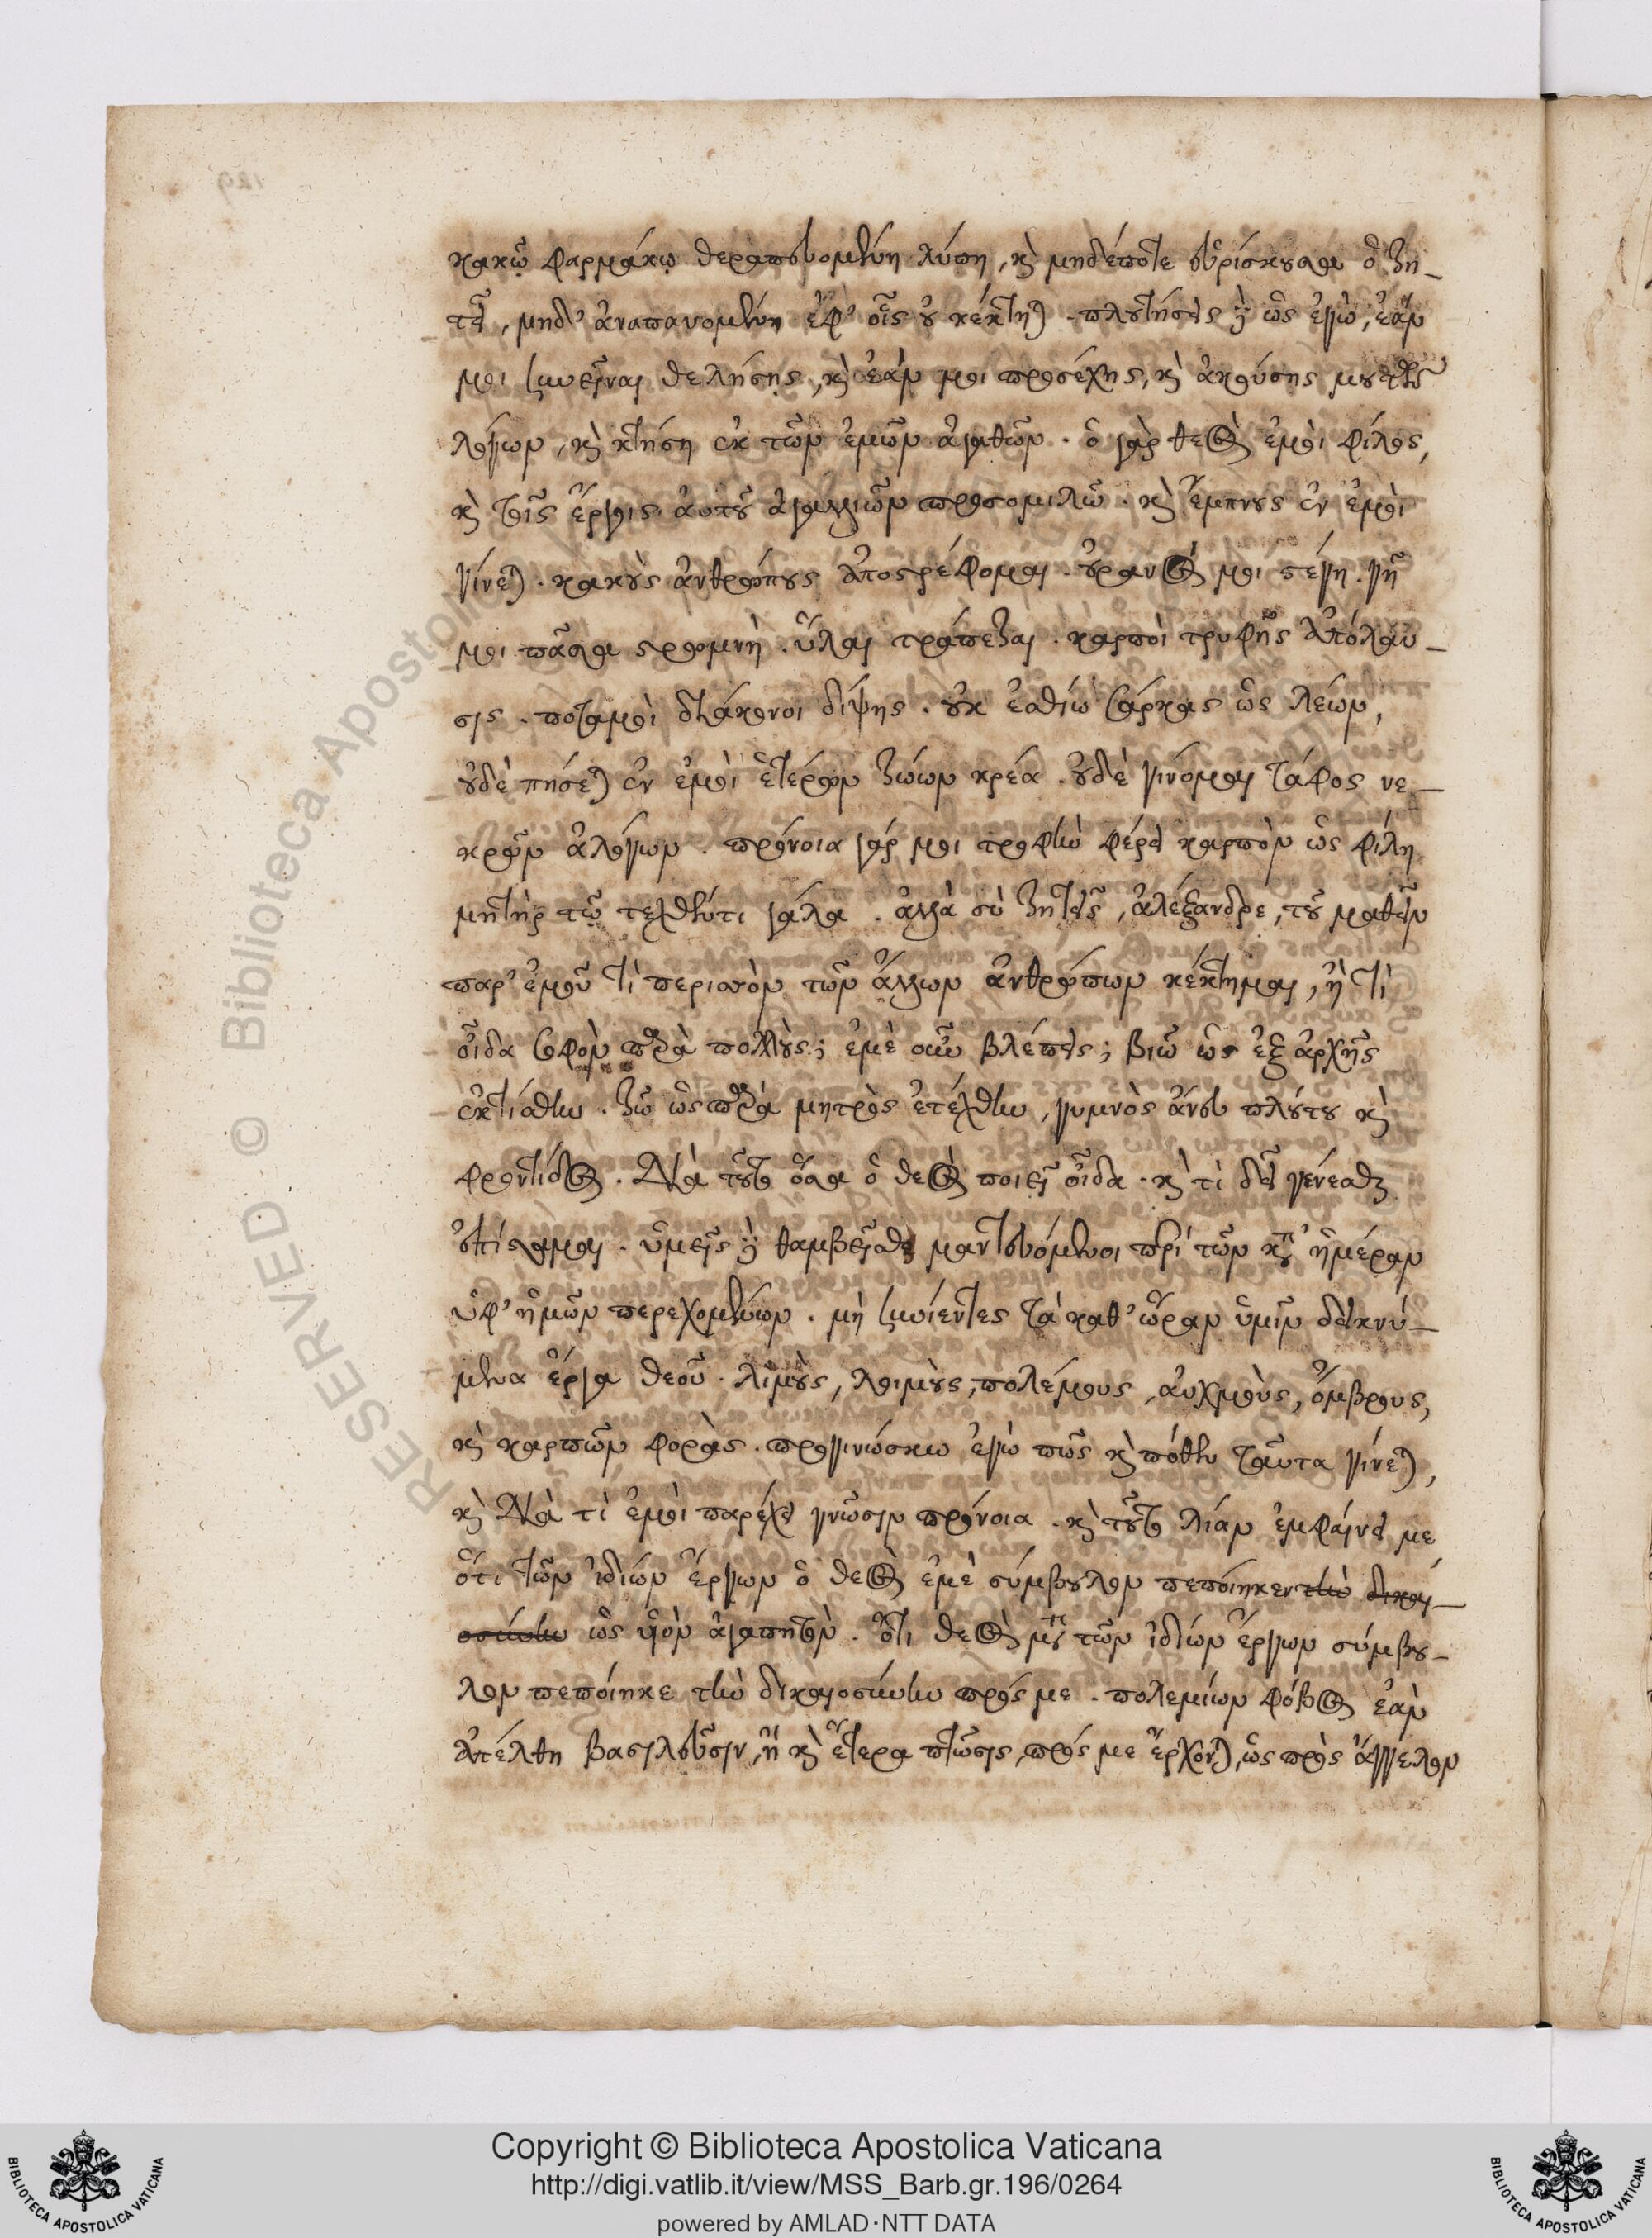 κακῷ φαρμάκῳ θεραπευομένη λύπη, καὶ μηδέποτε εὑρίσκουσα ὃ ζη-
τεῖ, μηδ' ἀναπαυομένη ἐφ' οἷς οὐ κέκτηται. πλουτήσεις γὰρ ὡς ἐγὼ, ἐάν
μοι συνεῖναι θελήσῃς, καὶ ἐάν μοι προσέχῃς, καὶ ἀκούσῃς μου τῶν
λόγων, καὶ κτήσῃ ἐκ τῶν ἐμῶν ἀγαθῶν. ὁ γὰρ θεὸς ἐμοὶ φίλος,
καὶ τοῖς ἔργοις αὐτοῦ ἀγαλλιῶν προσομιλῶ. καὶ ἔμπνους ἐν ἐμοὶ
γίνεται. κακοὺς ἀνθρώπους ἀποστρέφομαι. οὐρανός μοι στέγη. γῆ
μοι πᾶσα στρωμνὴ. ὗλαι τράπεζαι. καρποὶ τρυφῆς ἀπόλαυ-
σις. ποταμοὶ διάκονοι δίψης. οὐκ ἐσθίω σάρκας ὡς λέων,
οὐδὲ πήσεται ἐν ἐμοὶ ἑτέρων ζώων κρέα. οὐδὲ γίνομαι τάφος νε-
κρῶν ἀλόγων. πρόνοια γάρ μοι τροφὴν φέρει καρπὸν ὡς φίλη
μήτηρ τῷ τεχθέντι γάλα. ἀλλὰ σὺ ζητεῖς, ἀλέξανδρε, τοῦ μαθεῖν
παρ' ἐμοῦ τί περισσὸν τῶν ἄλλων ἀνθρώπων κέκτημαι, ἢ τί
οἶδα σοφὸν παρὰ πολλούς; ἐμὲ οὖν βλέπεις; βιῶ ὡς ἐξ ἀρχῆς
ἐκτίσθην. ζῶ ὡς παρὰ μητρὸς ἐτέχθην, γυμνὸς ἄνευ πλούτου καὶ
φροντίδος. διὰ τοῦτο ὅσα ὁ θεὸς ποιεῖ οἶδα. καὶ τί δεῖ γενέσθαι
ἐπίσταμαι. ὑμεῖς γὰρ θαμβεῖσθε μαντευόμενοι περὶ τῶν καθ' ἡμέραν
ὑφ' ἡμῶν περεχομένων. μὴ συνίεντες τὰ καθ' ὥραν ὑμῖν δεικνύ-
μενα ἔργα θεοῦ. λιμοὺς, λοιμοὺς, πολέμους, αὐχμοὺς, ὄμβρους,
καὶ καρπῶν φορὰς. προγινώσκω ἐγὼ πῶς καὶ πόθεν ταῦτα γίνεται,
καὶ διὰ τί ἐμοὶ παρέχει γνῶσιν πρόνοια. καὶ τοῦτο λίαν ἐμφαίνει με
ὅτι τῶν ἰδίων ἔργων ὁ θεὸς ἐμὲ σύμβουλον πεποίηκεν τὴν δικαι-
οσύνην ὡς υἱὸν ἀγαπητὸν. ὅτι θεὸς μετὰ τῶν ἰδίων ἔργων σύμβου-
λον πεποίηκε τὴν δικαιοσύνην πρός με. πολεμίων φόβος ἐὰν
ἀπέλθῃ βασιλεῦσιν, ἢ καὶ ἕτερα πτῶσις, πρός με ἔρχονται, ὡς πρὸς ἄγγελον
Copyright © Biblioteca Apostolica Vaticana
http://digi.vatlib.it/view/MSS_Barb.gr.196/0264
powered by AMLAD·NTT DATA
BIBLIOTECA APOSTOLICA VATICANA
BIBLIOTECA APOSTOLICA VATICANA